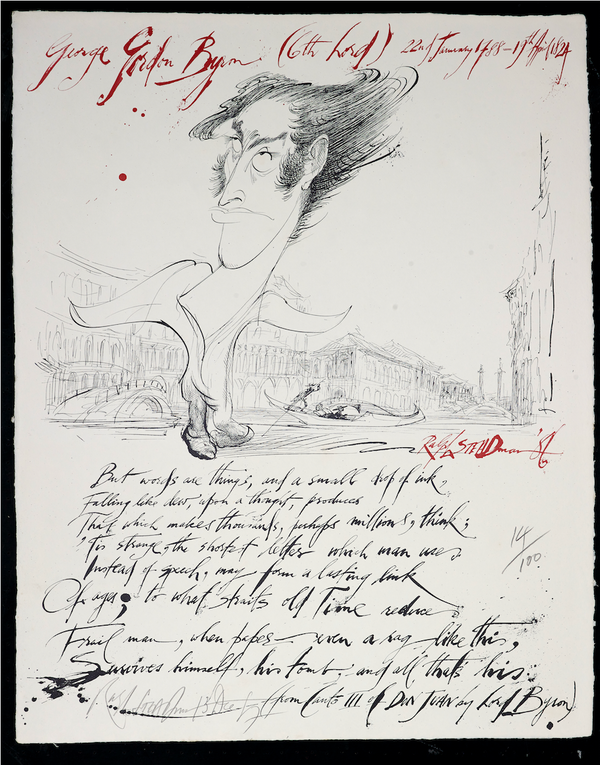 George Gordon Byron (6th Lord) 22nd January 1788 – 19th April 1824
Ralph STEADman
But words are things, and a small drop of ink,
Falling like dew, upon a thought, produces
That which makes thousands, perhaps millions, think;
'Tis strange, the shortest letter which man uses
Instead of speech, may form a lasting link
Of ages; to what straits old Time reduces
Frail man, when paper – even a rag like this,
Survives himself, his tomb, and all that's his.
(from Canto III of DON JUAN by Lord Byron)
14/100